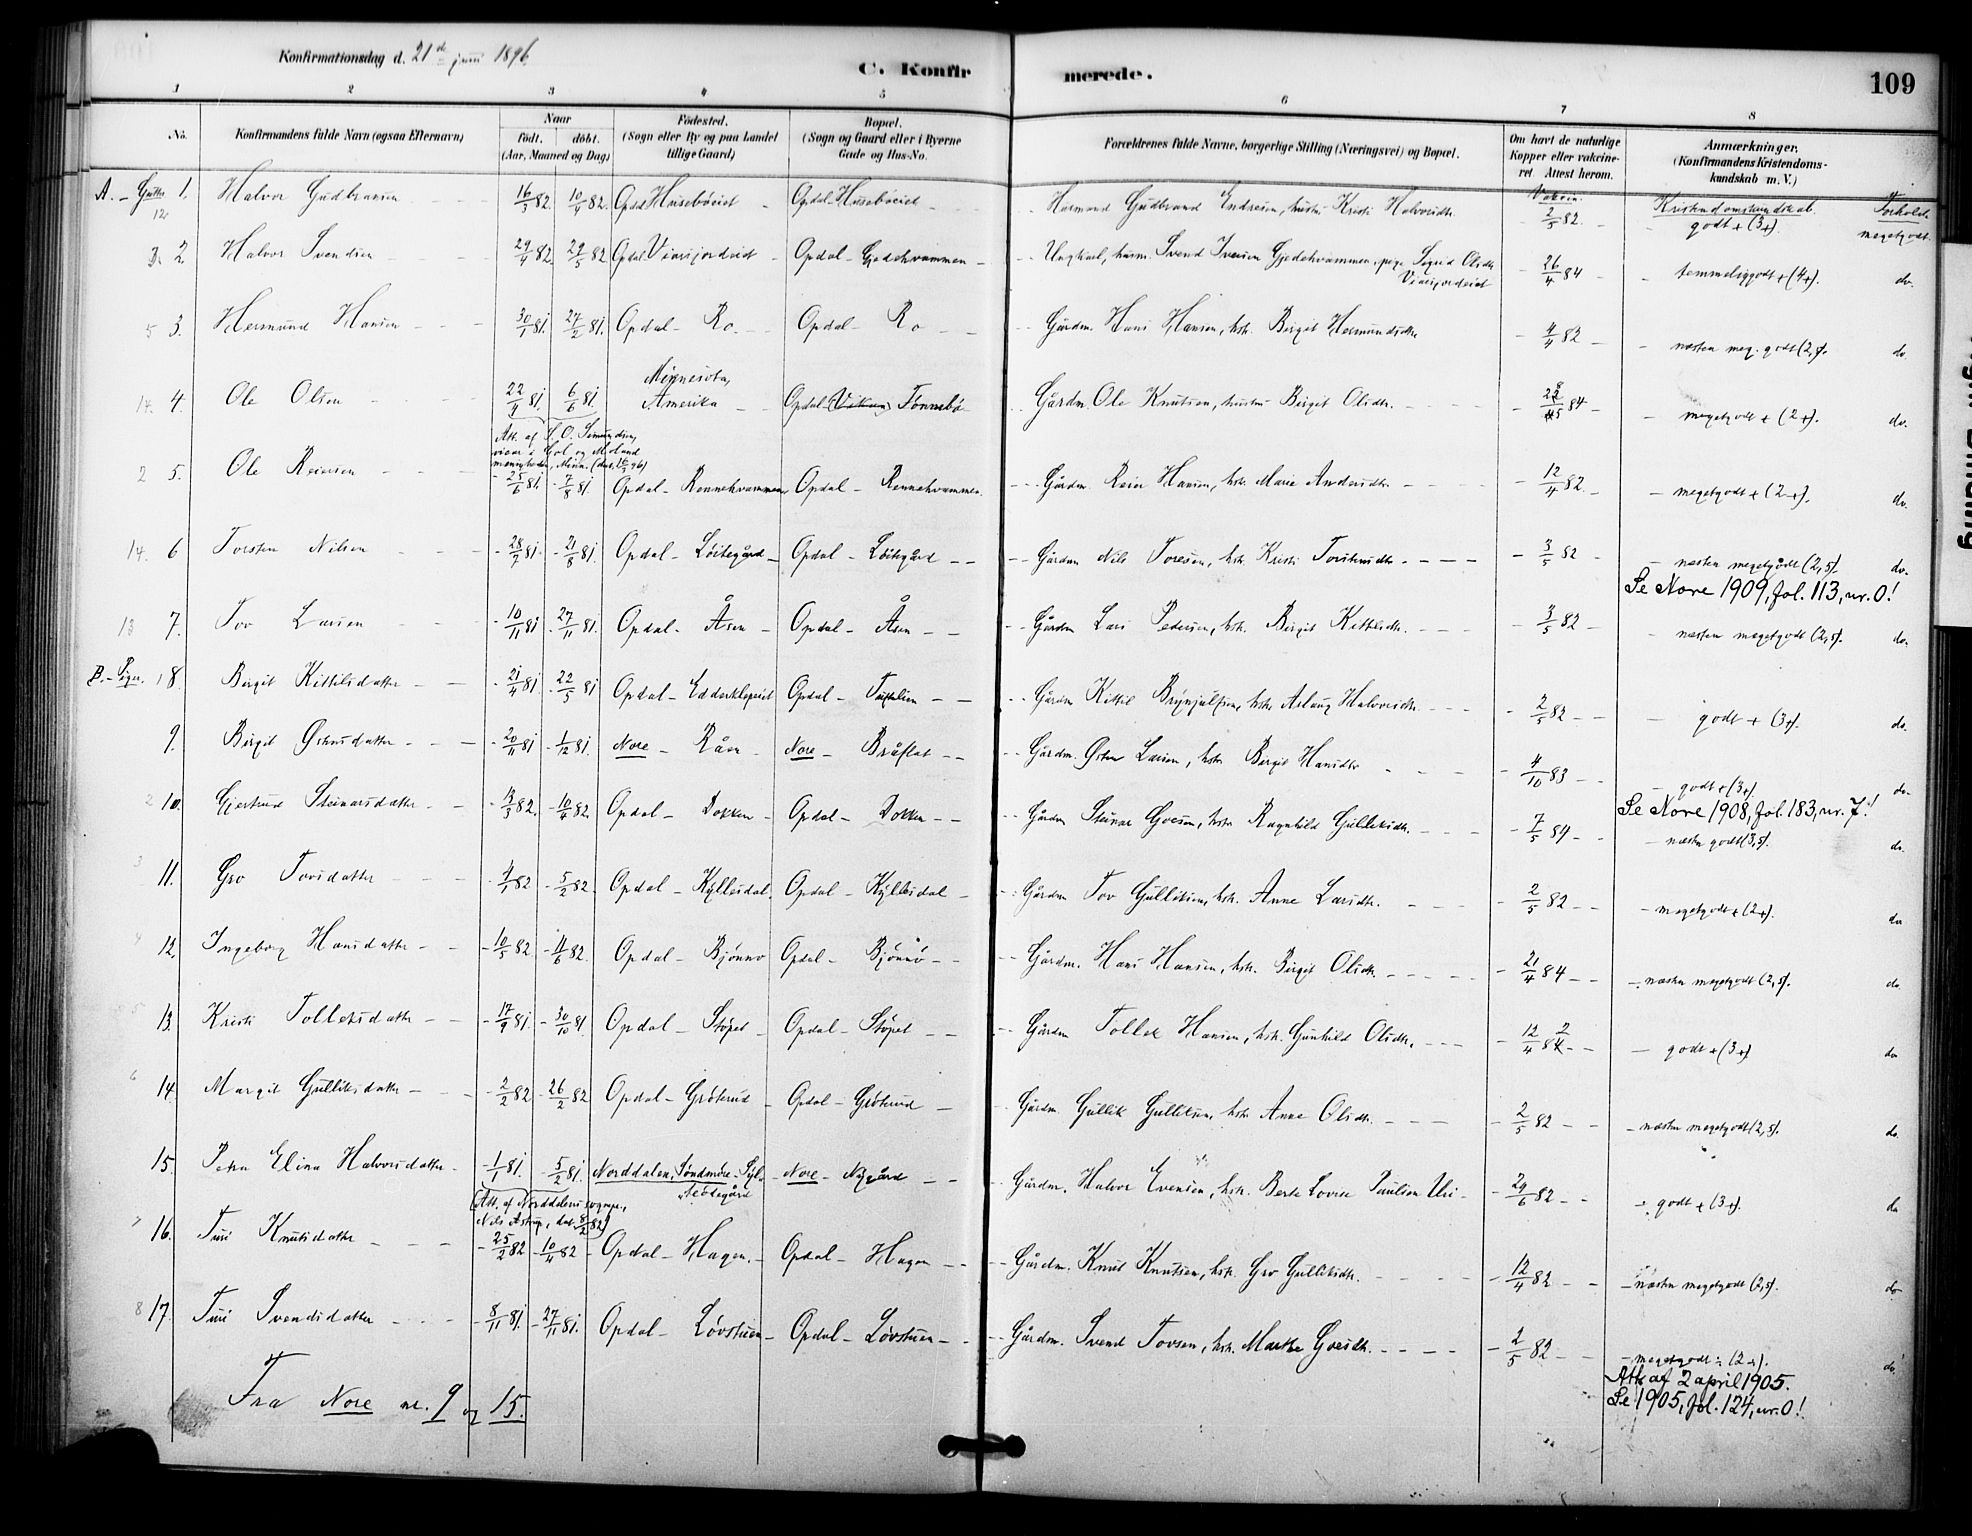 Konfirmationsdag d. 21de juni 1896.
C. Konfirmerede.
109
1 2 3 4 5 6 7 8
No. Konfirmandens fulde Navn (ogsaa Efternavn) Naar født. døbt. (Aar, Maaned og Dag) Fødested. (Sogn eller By og paa Landet tillige Gaard) Bopæl. (Sogn og Gaard eller i Byerne Gade og Hus-No. Forældrenes fulde Navne, borgerlige Stilling (Næringsvei) og Bopæl. Om havt de naturlige Kopper eller vakcineret. Attest herom. Anmærkninger. (Konfirmandens Kristendomskundskab m. V.)
Vakcin. Kristendomskundskab. Forhold:
A. - Gutter 1. Halvor Gudbransen 16/3 82. 10/4 82. Opdal Husebøeiet Opdal - Husebøeiet Husmand Gudbrand Endresen, hustru Kristi Halvorsdtr. 2/5 82. godt + (3+). megetgodt.
2. Halvor Svendsen 29/4 82. 29/5 82 Opdal Opdal - Gjedehvammen Ungkarl, husm. Svend Iversen Gjedehvammen, pige Sigrid Olsdtr. 26/4 84 temmeliggodt + (4+). do.
5 3. Hermund Hansen 30/1 81. 27/2 81. Opdal - Ro Opdal - Ro Gårdm. Hans Hansen, hstr. Birgit Hermundsdtr. 4/4 82 næsten meg. godt (2,5). do.
14. 4. Ole Olsen 22/4 81. 6/6 81. Minnesota, Amerika Opdal (Viken) Tønnebø Gårdm. Ole Knutsen, hustru Birgit Olsdtr. 84 megetgodt + (2+). do.
Att. af S. O. Simundsen,
2 5. Ole Reiersen 25/6 81. 7/8 81. Opdal - Rennehvammen Opdal - Rennehvammen. Gårdm. Reier Hansen, hstr. Marie Andersdtr. 12/4 82. megetgodt + (2+). do.
14. 6 Torsten Nilsen 28/7 81. 21/8 81. Opdal - Løitegård Opdal - Løitegård Gårdm. Nils Toresen, hstr. Kristi Torstensdtr. 3/5 82 næsten megetgodt (2,5). do.
Se Nore 1909, fol. 113, nr. 0!
13 7. Tov Larsen 10/11 81 27/11 81. Opdal - Åsen Opdal - Åsen Gårdm Lars Pedersen, hstr. Birgit Kittilsdtr. 3/5 82 næsten megetgodt (2,5). do.
B. - Piger. 1 8. Birgit Kittilsdatter 21/4 81 22/5 81 Opdal - Edderklepeiet Opdal - Tuftelien Gårdm Kittil Brynjulfsen, hstr. Aslaug Halvorsdtr. 2/5 82 godt + (3+). do.
9. Birgit Østensdatter 20/11 81 1/12 81. Nore - Råen Nore - Bråflat Gårdm. Østen Larsen, hstr. Birgit Hansdtr 4/10 83 godt + (3+). do.
Se Nore 1908, fol. 183, nr. 7!
2 10. Gjertrud Steinarsdatter 13/3 82. 10/4 82. Opdal - Dokken Opdal - Dokken Gårdm Steinar Goesen, hstr. Ragnhild Gulliksdtr. 7/5 84 næsten godt (3,5). do.
3 11. Gro Tovsdatter 4/1 82 5/2 82. Opdal - Kyllesdal. Opdal - Kyllesdal Gårdm Tov Gulliksen, hstr. Anne Larsdtr. 2/5 82 megetgodt + (2+). do
4 12. Ingeborg Hansdatter 10/5 82 11/6 82. Opdal - Bjønnø Opdal - Bjønnø Gårdm. Hans Hansen, hstr. Birgit Olsdtr. 21/4 84 næsten megetgodt (2,5). do.
5 13. Kristi Tolleksdatter 17/9 81. 30/10 81 Opdal - Støpet Opdal - Støpet Gårdm Tollek Hansen, hstr. Gunhild Olsdtr. 12/4 82 godt + (3+) do
6 14. Margit Gulliksdatter 2/2 82 26/2 82 Opdal - Grøterud Opdal - Grøterud Gårdm. Gullik Gulliksen, hstr. Anne Olsdtr. 2/5 82 næsten megetgodt (2,5). do.
15. Petra Elina Halvorsdatter 1/1 81. 5/2 81. Norddalen, Søndmøre - Syl- Nore - Nygård Gårdm. Halvor Evensen, hstr. Berte Lovise Paulsen Uri 29/6 82 godt + (3+). do
(Att. af Norddalens sognepr., Nils Astrup, dat. 8/2 82)
7 16. Turi Knutsdatter 25/2 82 10/4 82 Opdal - Hagen. Opdal - Hagen Gårdm. Knut Knutsen, hstr. Gro Gulliksdtr. 12/4 82 næsten megetgodt (2,5). do
8 17. Turi Svendsdatter 8/11 81. 27/11 81. Opdal - Løvstuen Opdal - Løvstuen Gårdm. Svend Tovsen, hstr. Marthe Goesdtr. 2/5 82 megetgodt (2+). do.
Att. af 2 april 1905.
Se 1905, fol. 124, nr. 0!
Fra Nore nr. 9 og 15.